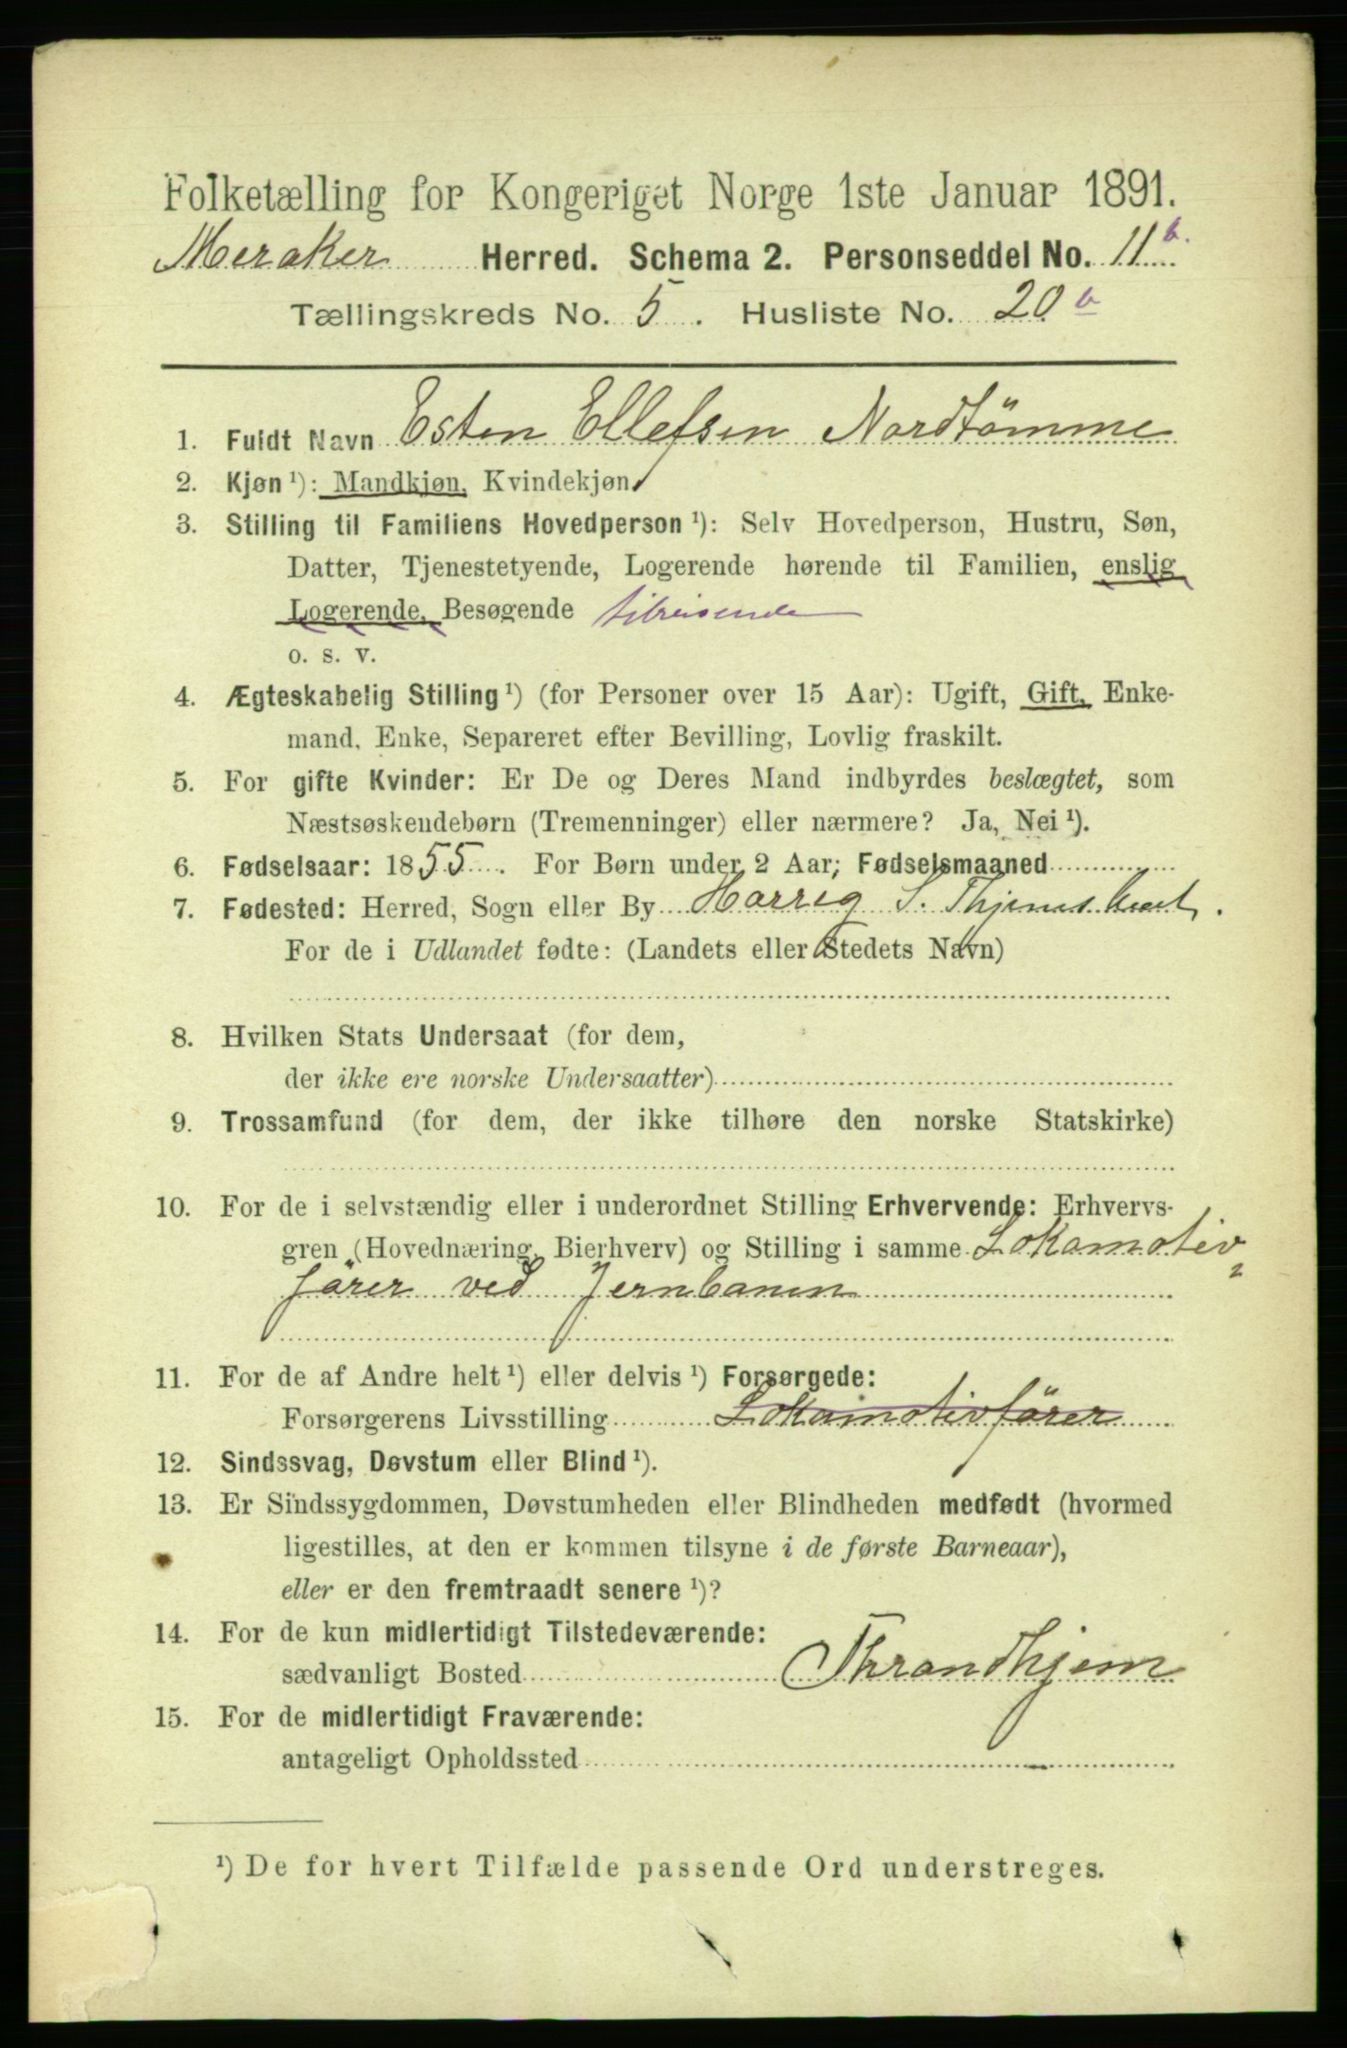 Folketælling for Kongeriget Norge 1ste Januar 1891.
Meraker Herred. Schema 2. Personseddel No. 11 b.
Tællingskreds No. 5. Husliste No. 20 b
1. Fuldt Navn Esten Ellefsen Nordtömme
2. Kjøn ¹): Mandkjøn, Kvindekjøn.
3. Stilling til Familiens Hovedperson ¹): Selv Hovedperson, Hustru, Søn,
Datter, Tjenestetyende, Logerende hørende til Familien, enslig
Logerende, Besøgende tilreisende
o. s. v.
4. Ægteskabelig Stilling ¹) (for Personer over 15 Aar): Ugift, Gift, Enke-
mand, Enke, Separeret efter Bevilling, Lovlig fraskilt.
5. For gifte Kvinder: Er De og Deres Mand indbyrdes beslægtet, som
Næstsøskendebørn (Tremenninger) eller nærmere? Ja, Nei ¹).
6. Fødselsaar: 1855. For Børn under 2 Aar; Fødselsmaaned
7. Fødested: Herred, Sogn eller By S.
For de i Udlandet fødte: (Landets eller Stedets Navn)
8. Hvilken Stats Undersaat (for dem,
der ikke ere norske Undersaatter)
9. Trossamfund (for dem, der ikke tilhøre den norske Statskirke)
10. For de i selvstændig eller i underordnet Stilling Erhvervende: Erhvervs-
gren (Hovednæring, Bierhverv) og Stilling i samme Lokomotiv
förer ved Jernbanen
11. For de af Andre helt ¹) eller delvis ¹) Forsørgede:
Forsørgerens Livsstilling Lokomotivförer
12. Sindssvag, Døvstum eller Blind ¹).
13. Er Sindssygdommen, Døvstumheden eller Blindheden medfødt (hvormed
ligestilles, at den er kommen tilsyne i de første Barneaar),
eller er den fremtraadt senere ¹)?
14. For de kun midlertidigt Tilstedeværende:
sædvanligt Bosted Thrandhjem
15. For de midlertidigt Fraværende:
antageligt Opholdssted
¹) De for hvert Tilfælde passende Ord understreges.